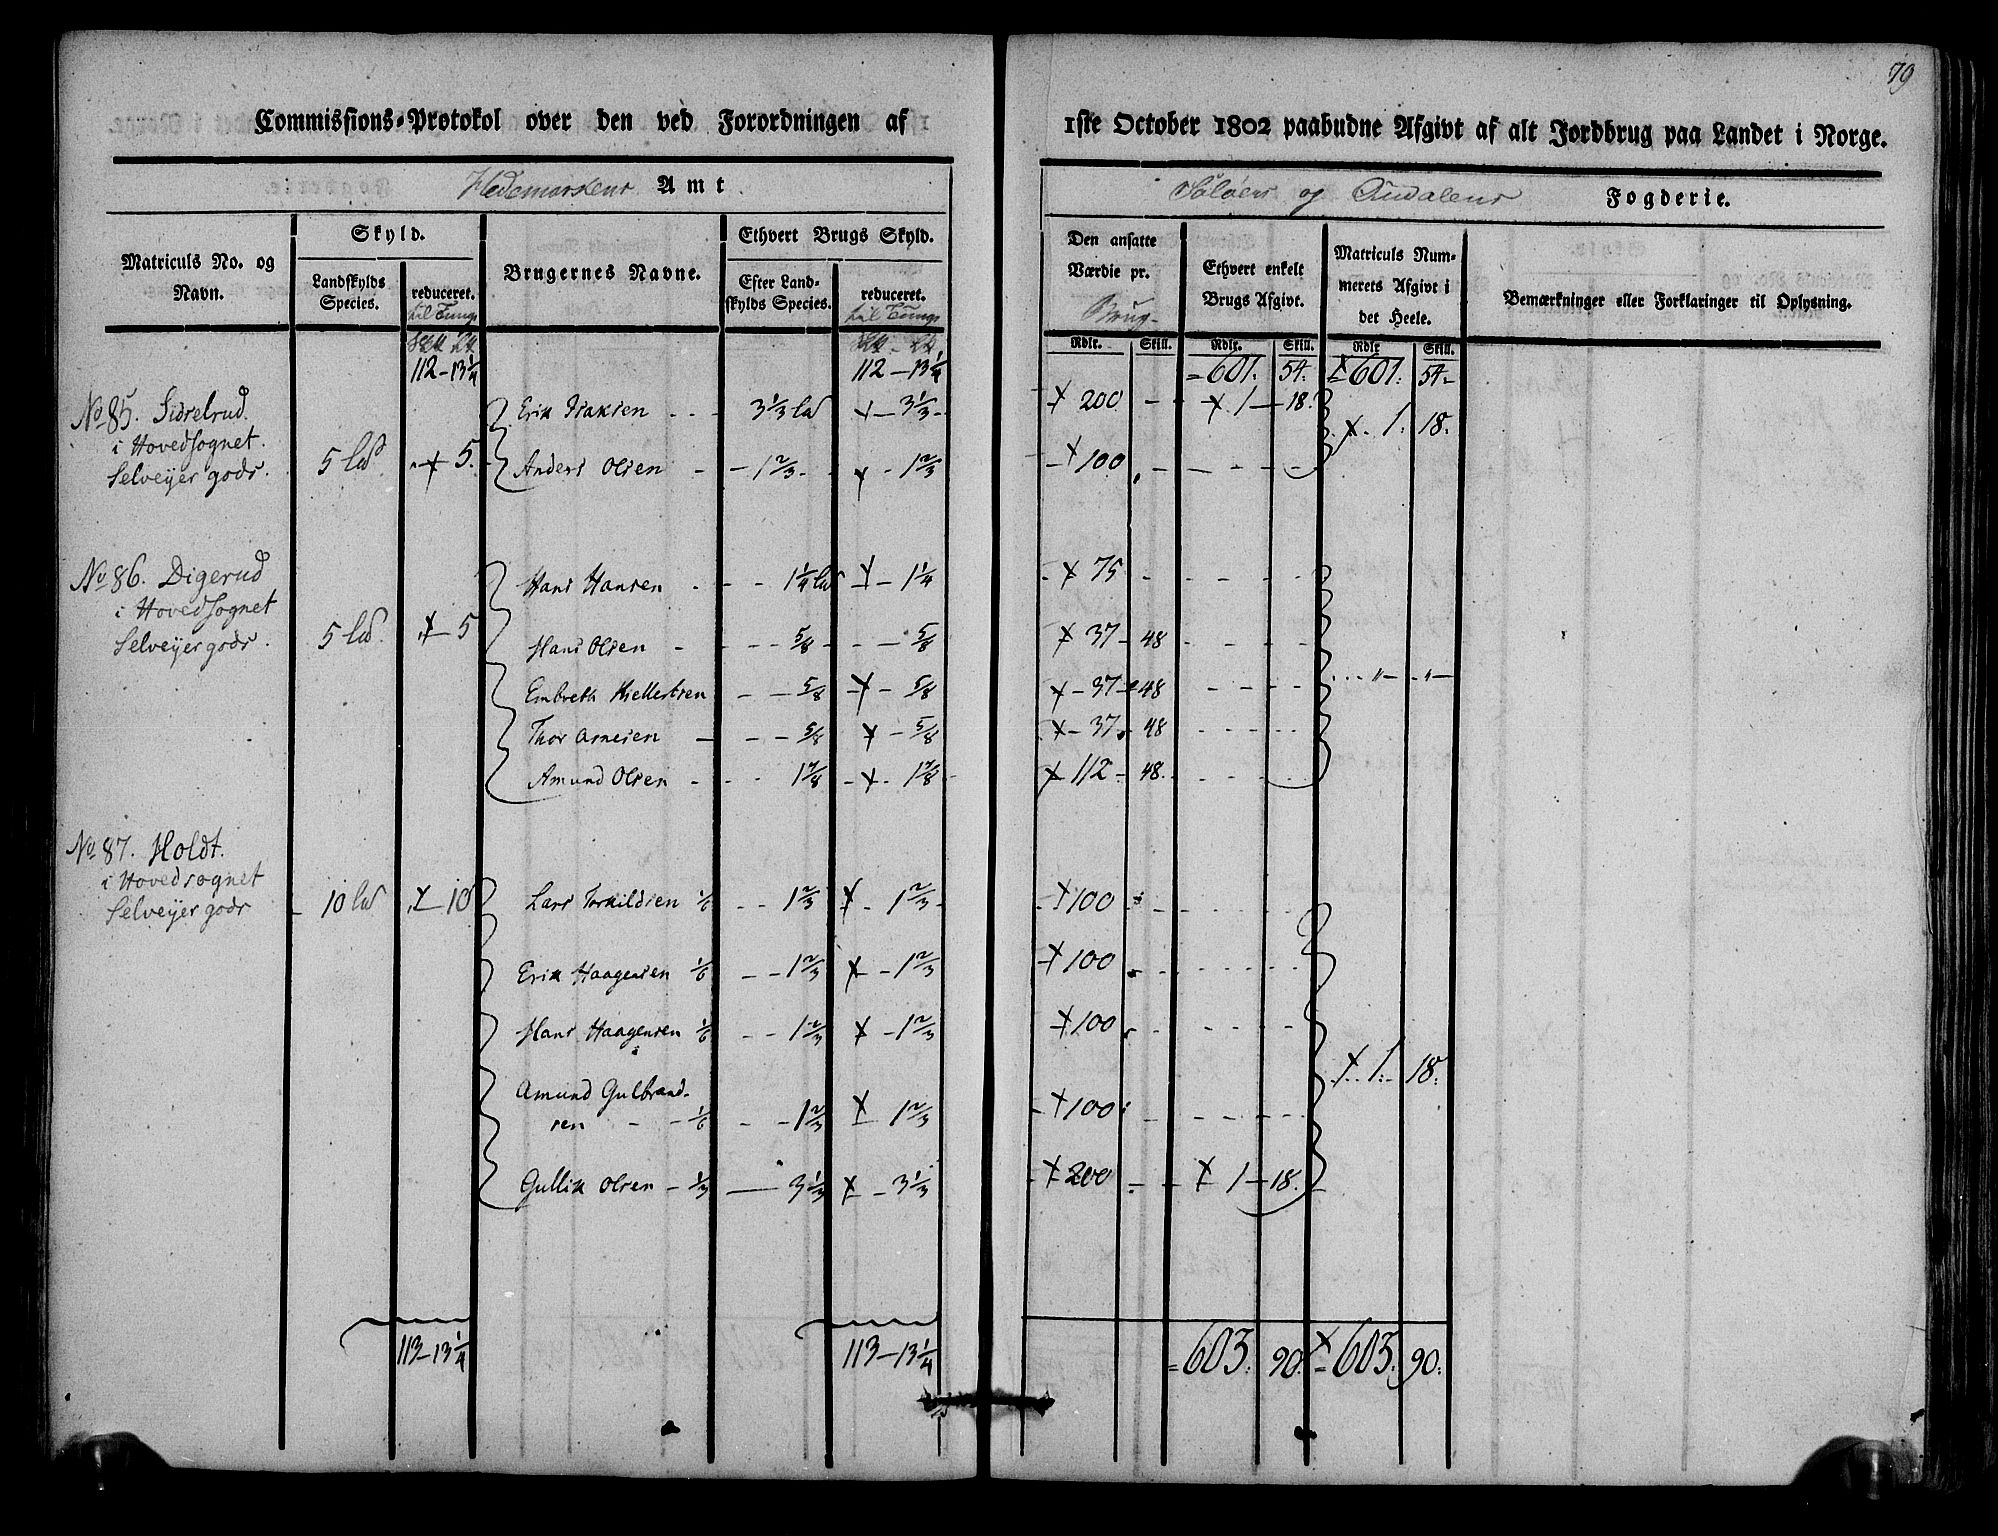 79
Commissions-Protokol over den ved Forordningen af 1ste October 1802 paabudne Afgivt af alt Jordbrug paa Landet i Norge.
Hedemarkens Amt
Soløers og Oudalens Fogderie.
Matriculs No. og Navn.
Skyld.
Landskylds Species.
reduceret.
til Tunge
Brugernes Navne.
Ethvert Brugs Skyld.
Efter Landskylds Species.
reduceret.
til Tunge
Den ansatte Værdie pr.
Brug
Ethvert enkelt Brugs Afgivt.
Matriculs Nummerets Afgivt i det Heele.
Bemærkninger eller Forklaringer til Oplysning.
Rdlr. Skill. Rdlr. Skill. Rdlr Skill.
112 - 13 1/4 112 - 13 1/4 601. 54. 601. 54
No 85. Sidselrud Erik Isaksen 3 1/3 lad 3 1/3 200 1 - 18.
i Hovedsognet. 1. 18.
Selveyer gods. 5 lad 5. Anders Olsen 1 2/3 1 2/3 100
No 86. Digerud Hans Hansen 1 1/4 lad 1 1/4 75
i Hovedsognet
Selveyer gods. 5 lad. 5 Hans Olsen 5/8 5/8 37 - 48
Embreth Kielletsen 5/8 5/8 37 - 48
Thor Arnesen 5/8 5/8 37. 48
Amund Olsen 1 7/8 1 7/8 112 - 48.
No 87. Holdt.
i Hovedsognet
Selveyer gods 10 lad 10 Lars Torkildsen 1/6 1 2/3 1 2/3 100
Erik Haagensen 1/6 1 2/3 1 2/3 100
Hans Haagensen 1/6 1 2/3 1 2/3 100
1. 18.
Amund Gulbrand-
sen 1/6 1 2/3 1 2/3 100
Gullik Olsen 1/3 3 1/3 3 1/3 200 1 - 18.
113 - 13 1/4 113 - 13 1/4 603. 90. 603. 90.